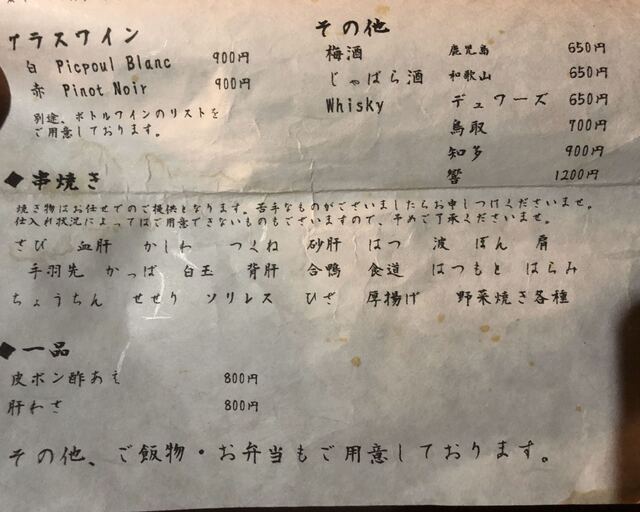 グラスワイン
白 Picpoul Blanc 900円
赤 Pinot Noir 900円
別途、ボトルワインのリストを
ご用意しております。
その他
梅酒 鹿児島 650円
じゃばら酒 和歌山 650円
Whisky デュワーズ 650円
鳥取 700円
知多 900円
響 1200円
◆串焼き
焼き物はお任せでのご提供となります。苦手なものがございましたらお申しつけくださいませ。
仕入れ状況によってはご用意できないものもございますので、予めご了承くださいませ。
さび 血肝 かしわ つくね 砂肝 はつ 波 ぼん 肩
手羽先 かっぱ 白玉 背肝 合鴨 食道 はつもと はらみ
ちょうちん せせり ソリレス ひざ 厚揚げ 野菜焼き各種
◆一品
皮ポン酢あえ 800円
肝わさ 800円
その他、ご飯物・お弁当もご用意しております。